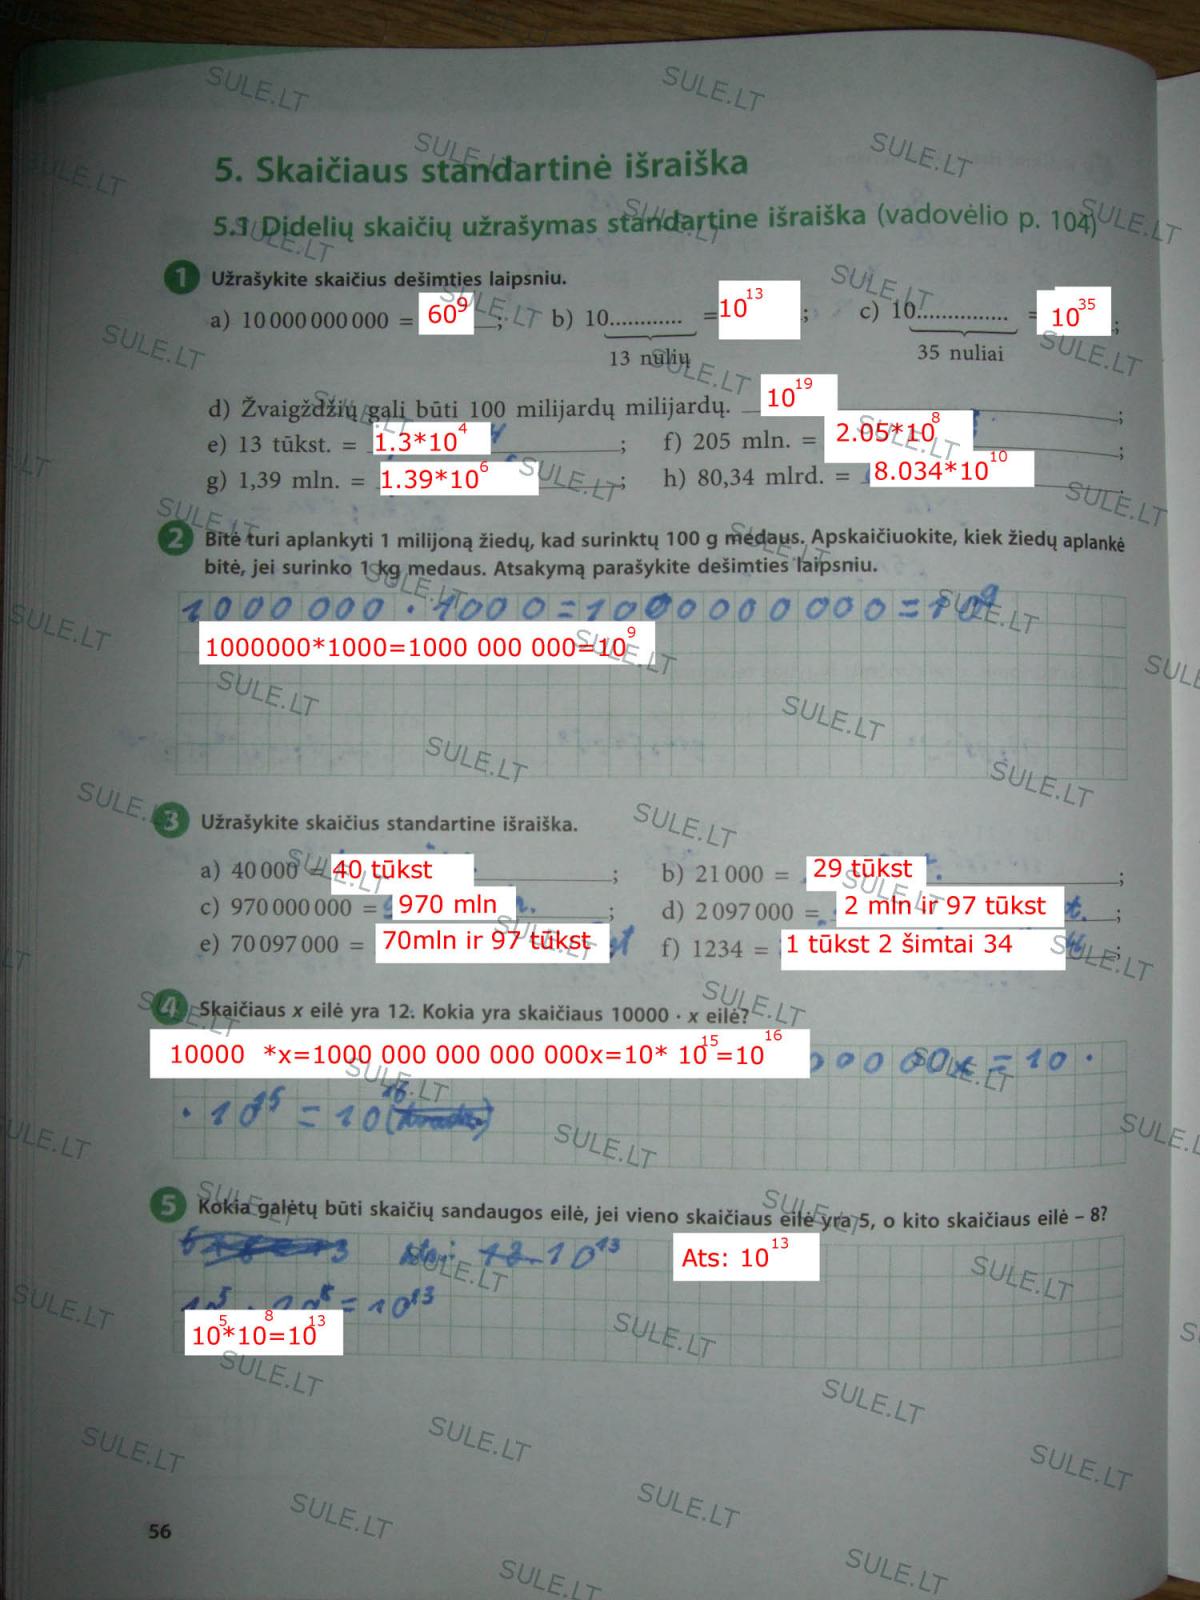 5. Skaičiaus standartinė išraiška
5.1 Didelių skaičių užrašymas standartine išraiška (vadovėlio p. 104)
1 Užrašykite skaičius dešimties laipsniu.
a) 10 000 000 000 = 60⁹ ; b) 10............ =10¹³ ; c) 10............... = 10³⁵ ;
13 nulių 35 nuliai
d) Žvaigždžių gali būti 100 milijardų milijardų. 10¹⁹ ;
e) 13 tūkst. = 1.3*10⁴ ; f) 205 mln. = 2.05*10⁸ ;
g) 1,39 mln. = 1.39*10⁶ ; h) 80,34 mlrd. = 8.034*10¹⁰ .
2 Bitė turi aplankyti 1 milijoną žiedų, kad surinktų 100 g medaus. Apskaičiuokite, kiek žiedų aplankė
bitė, jei surinko 1 kg medaus. Atsakymą parašykite dešimties laipsniu.
1000 000 · 1000 = 1000000000 = 10⁹
1000000*1000=1000 000 000=10⁹
3 Užrašykite skaičius standartine išraiška.
a) 40 000 = 40 tūkst ; b) 21 000 = 29 tūkst ;
c) 970 000 000 = 970 mln ; d) 2 097 000 = 2 mln ir 97 tūkst ;
e) 70 097 000 = 70mln ir 97 tūkst f) 1234 = 1 tūkst 2 šimtai 34 ;
4 Skaičiaus x eilė yra 12. Kokia yra skaičiaus 10000 · x eilė?
10000 *x=1000 000 000 000 000x=10* 10¹⁵=10¹⁶ 0 0 0 0 0x = 10 ·
· 10¹⁵ = 10¹⁶
5 Kokia galėtų būti skaičių sandaugos eilė, jei vieno skaičiaus eilė yra 5, o kito skaičiaus eilė – 8?
Ats: 10¹³ Ats: 10¹³
10⁵ · 10⁸ = 10¹³
10⁵*10⁸=10¹³
56
SULE.LT